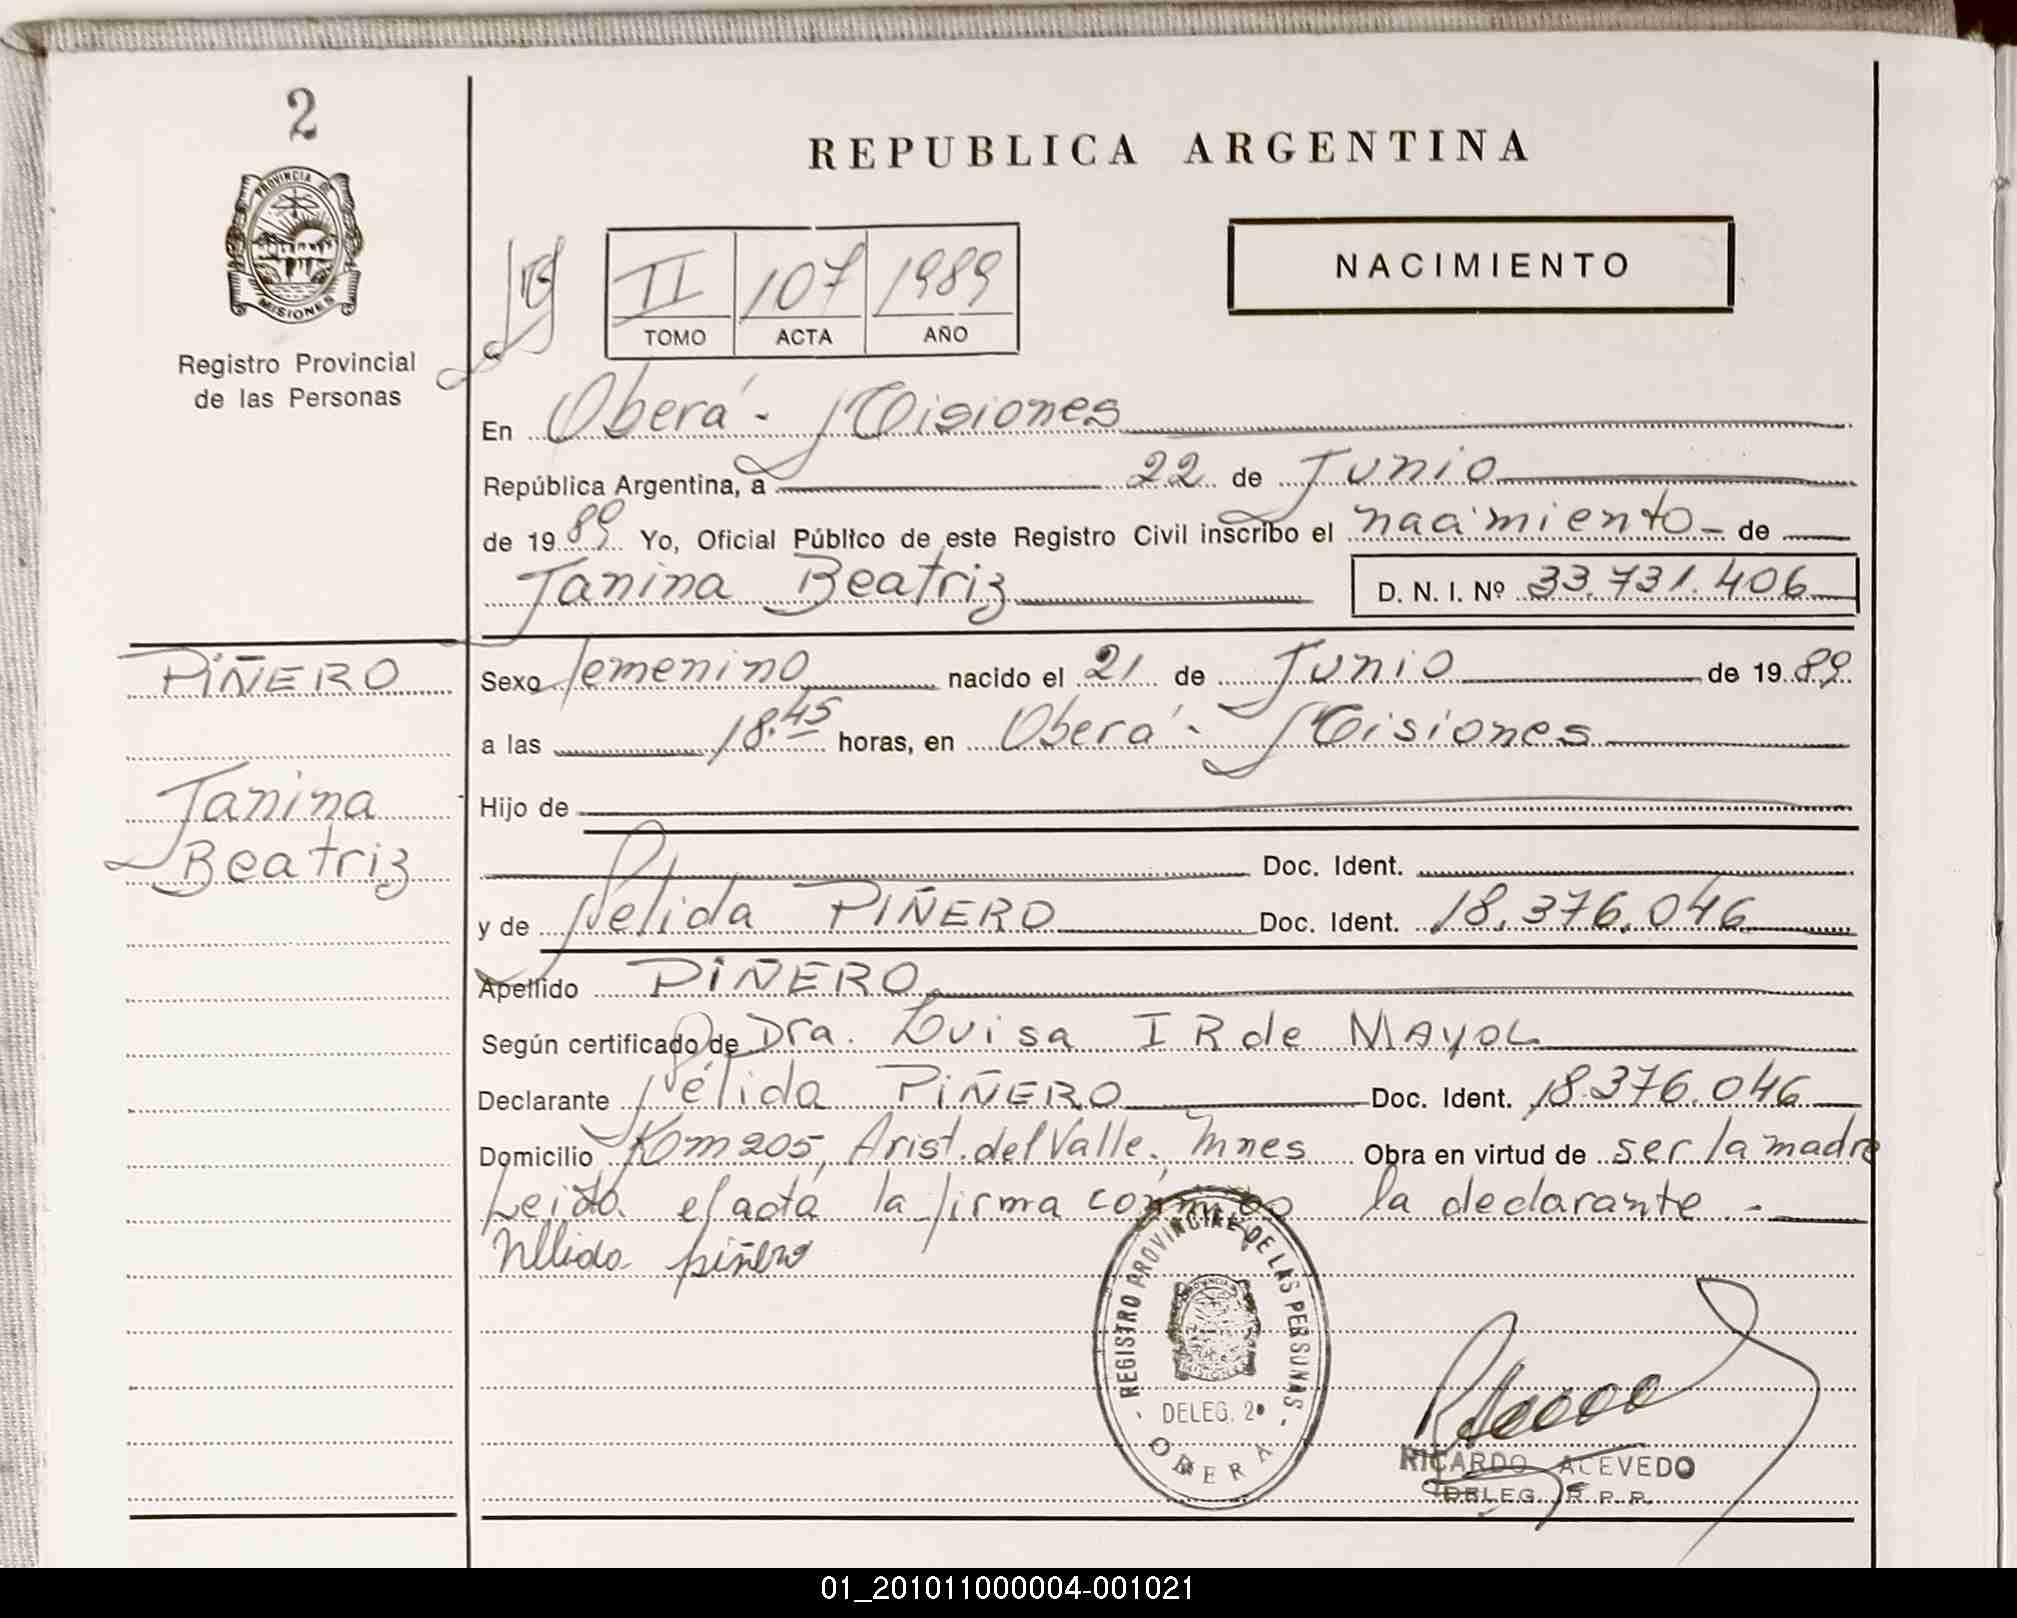 2
PROVINCIA DE
MISIONES
Registro Provincial
de las Personas
REPUBLICA ARGENTINA
II 107 1989
TOMO ACTA AÑO
NACIMIENTO
En Oberá - Misiones
República Argentina, a 22 de Junio
de 1989 Yo, Oficial Público de este Registro Civil inscribo el nacimiento - de
Janina Beatriz D. N. I. Nº 33.731.406
PIÑERO
Janina
Beatriz
Sexo femenino nacido el 21 de Junio de 1989
a las 18.45 horas, en Oberá - Misiones
Hijo de
Doc. Ident.
y de Nelida PIÑERO Doc. Ident. 18.376.046
Apellido PIÑERO
Según certificado de Dra. Luisa I R de MAYOL
Declarante Nélida PIÑERO Doc. Ident. 18.376.046
Domicilio Km 205, Arist. del Valle, Mnes Obra en virtud de ser la madre
Leida el acta la firma conmigo la declarante -
Nélida piñero
REGISTRO PROVINCIAL DE LAS PERSONAS
DELEG. 2ª
OBERA
RICARDO ACEVEDO
DELEG. R. P. P.
01_201011000004-001021